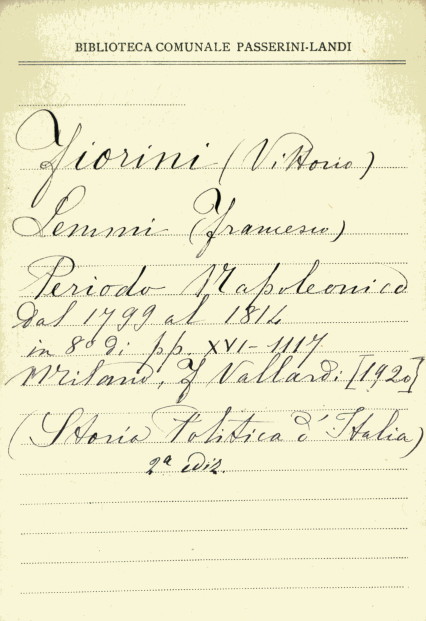 BIBLIOTECA COMUNALE PASSERINI-LANDI
Fiorini (Vittorio)
Lemmi (Francesco)
Periodo Napoleonico
dal 1799 al 1814
in 8° di pp. XVI-1117
Milano, F. Vallardi [1920]
(Storia Politica d'Italia)
2ª ediz.